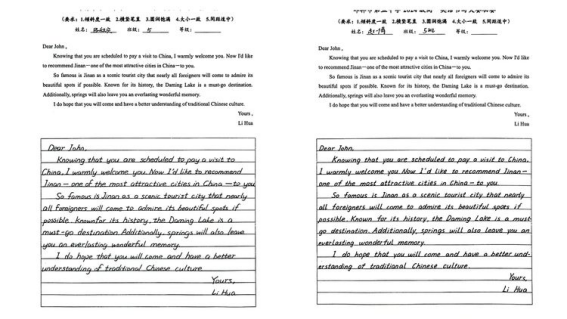 (要求：1.倾斜度一致 2.横竖笔直 3.圆润饱满 4.大小一致 5.间距适中)
姓名： 班级：5 等级：
Dear John ,
Knowing that you are scheduled to pay a visit to China, I warmly welcome you. Now I'd like
to recommend Jinan—one of the most attractive cities in China—to you.
So famous is Jinan as a scenic tourist city that nearly all foreigners will come to admire its
beautiful spots if possible. Known for its history, the Daming Lake is a must-go destination.
Additionally, springs will also leave you an everlasting wonderful memory.
I do hope that you will come and have a better understanding of traditional Chinese culture.
Yours ,
Li Hua
Dear John,
Knowing that you are scheduled to pay a visit to
China, I warmly welcome you. Now I'd like to recommend
Jinan — one of the most attractive cities in China — to you
So famous is Jinan as a scenic tourist city that nearly
all foreigners will come to admire its beautiful spots if
possible. knownfor its history, the Daming Lake is a
must-go destination Additionally, springs will also leave
you an everlasting wonderful memory.
I do hope that you will come and have a better
understanding of traditional Chinese culture
Yours,
Li Hua
(要求：1.倾斜度一致 2.横竖笔直 3.圆润饱满 4.大小一致 5.间距适中)
姓名： 班级： 等级：
Dear John ,
Knowing that you are scheduled to pay a visit to China, I warmly welcome you. Now I'd like
to recommend Jinan—one of the most attractive cities in China—to you.
So famous is Jinan as a scenic tourist city that nearly all foreigners will come to admire its
beautiful spots if possible. Known for its history, the Daming Lake is a must-go destination.
Additionally, springs will also leave you an everlasting wonderful memory.
I do hope that you will come and have a better understanding of traditional Chinese culture.
Yours ,
Li Hua
Dear John,
Knowing that you are scheduled to pay a visit to China,
I warmly welcome you Now I'd like to recommend Jinan—
one of the most attractive cities in China — to you
So famous is Jinan as a scenic tourist city that nearly
all foreigners will come to admire its beautiful spots if
possible. Known for its history, the Daming Lake is a must
go destination. Additionally, springs will also leave you an
everlasting wonderful memory.
I do hope that you will come and have a better und-
erstanding of traditional Chinese culture.
Yours,
Li Hua